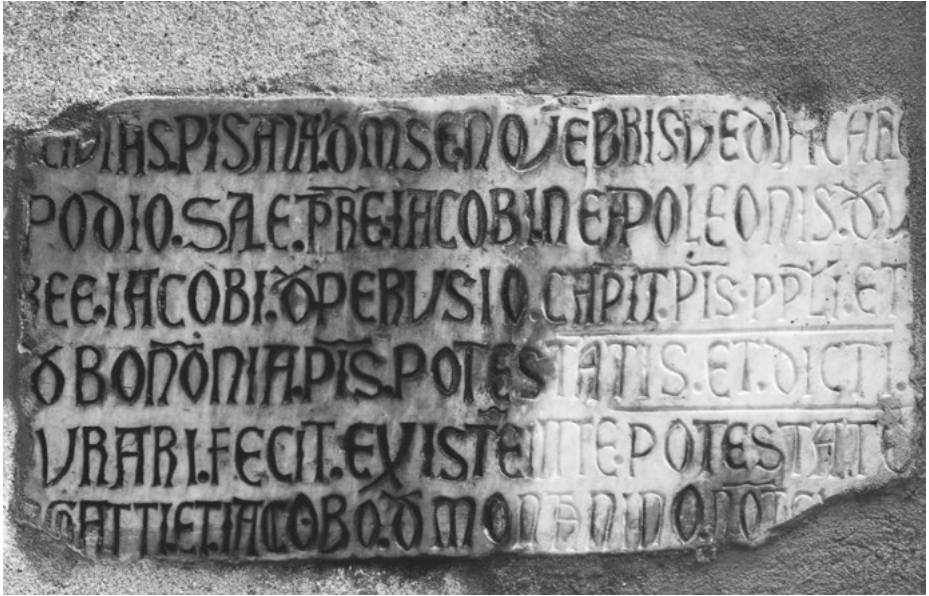 PISANA. D MSE. NOVEBRIS. DE DIA CAR
PODIO. SALE. PRE. IACOBI. NEAPOLEONIS. D
BEE. IACOBI. D PERUSIO. CAPIT. PIS. PPLI. ET
D BONONIA. PIS. POTESTATIS. ET. DICTI.
URARI. FECIT. EXISTENTE. POTESTATE
ATTI. ET. IACOBO. D MONANINO. NOT